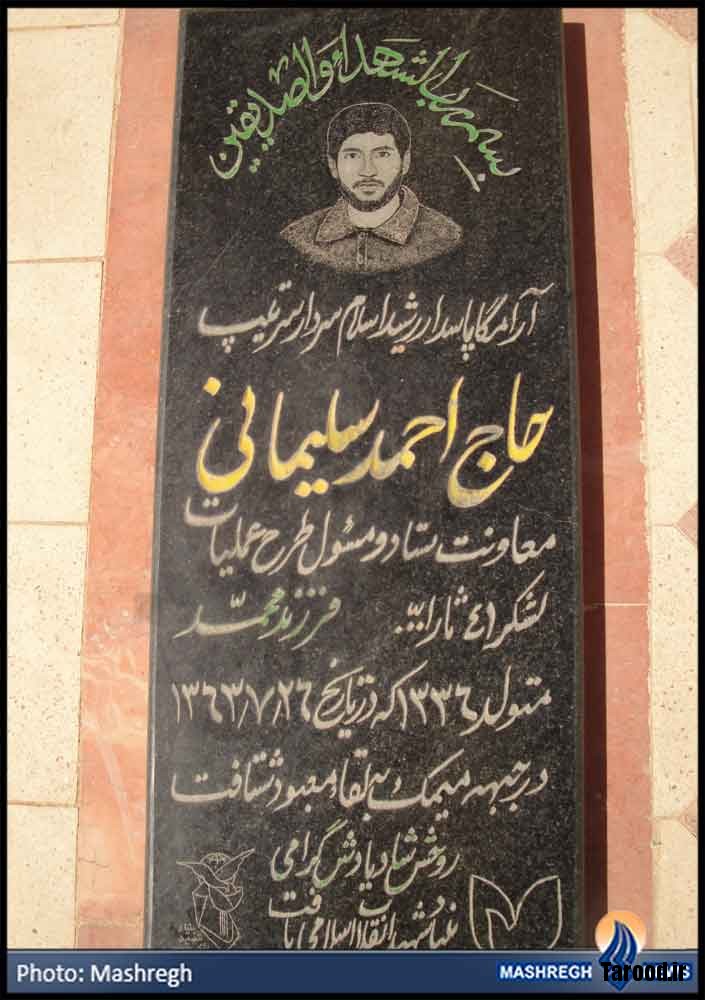 بسم رب الشهداء والصدیقین
آرامگاه پاسدار رشید اسلام سردار سرتیپ
حاج احمد سلیمانی
معاونت ستاد و مسئول طرح عملیات
لشکر ٤١ ثاراللّه فرزند محمّد
متولد ١٣٣٦ که در تاریخ ١٣٦٣/٧/٢٦
در جبهه میمک به لقاء معبود شتافت
روحش شاد یادش گرامی
بنیاد شهید انقلاب اسلامی بافت
Photo: Mashregh
MASHREGH NEWS
Tarood.ir